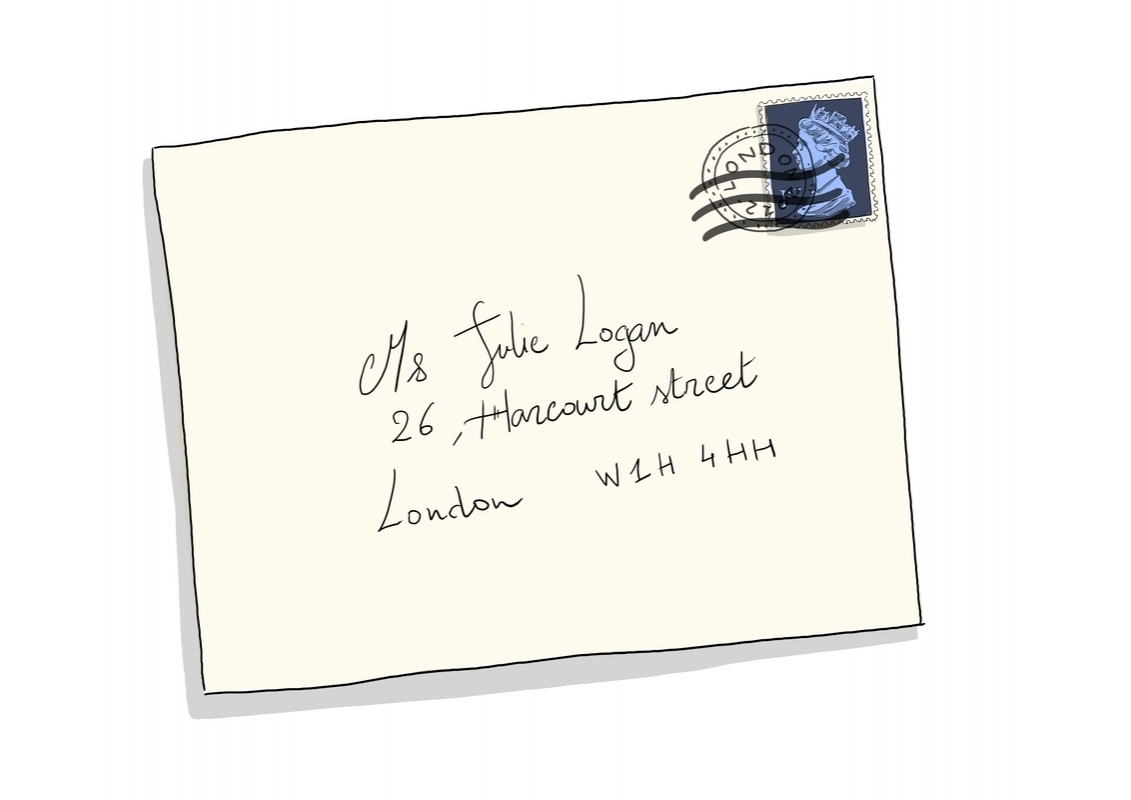 LONDON
Ms Julie Logan
26, Harcourt street
London W1H 4HH